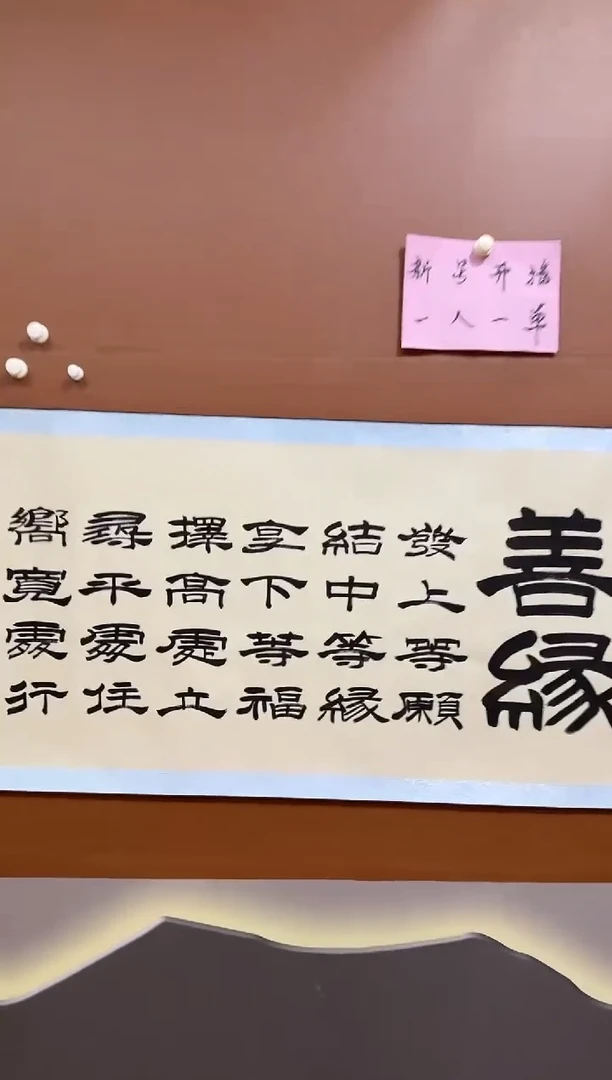 新号开播
一人一单
善緣
發上等願
結中等緣
享下等福
擇髙處立
尋平處住
嚮寬處行